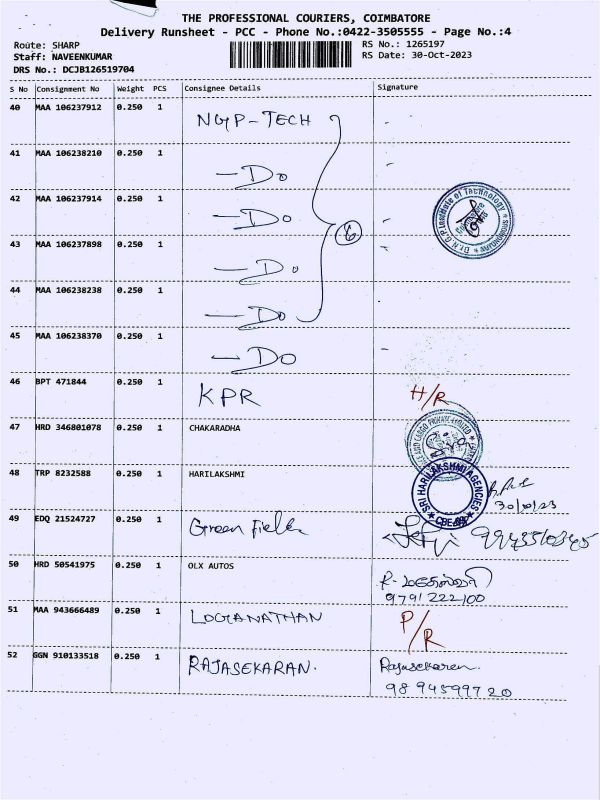 THE PROFESSIONAL COURIERS, COIMBATORE
Delivery Runsheet - PCC - Phone No.:0422-3505555 - Page No.:4
Route: SHARP RS No.: 1265197
Staff: NAVEENKUMAR RS Date: 30-Oct-2023
DRS No.: DCJB126519704
S No Consignment No Weight PCS Consignee Details Signature
40 MAA 106237912 0.250 1 NGP-TECH
41 MAA 106238210 0.250 1 - Do
42 MAA 106237914 0.250 1 - Do
43 MAA 106237898 0.250 1 - Do
44 MAA 106238238 0.250 1 - Do
45 MAA 106238370 0.250 1 - Do
6
Dr. N.G.P. Institute of Technology
46 BPT 471844 0.250 1 KPR H/R
47 HRD 346801078 0.250 1 CHAKARADHA
48 TRP 8232588 0.250 1 HARILAKSHMI
SRI HARILAKSHMI AGENCIES
30/10/23
49 EDQ 21524727 0.250 1 Green Fields
50 HRD 50541975 0.250 1 OLX AUTOS
9791222100
51 MAA 943666489 0.250 1 LOGANATHAN P/R
52 GGN 910133518 0.250 1 RAJASEKARAN. Rajasekaren.
9894599720